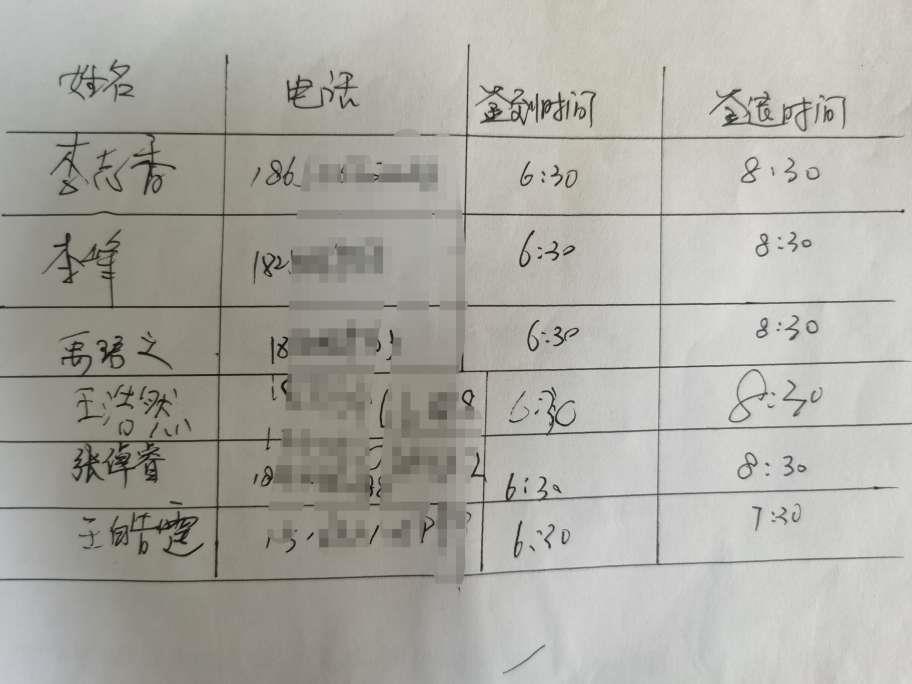 姓名 电话 签到时间 签退时间
李志香 186 6:30 8:30
李峰 182 6:30 8:30
禹珺之 18 6:30 8:30
王浩然 18 6:30 8:30
张倬睿 18 6:30 8:30
王皓霆 15 6:30 7:30